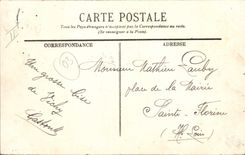 CARTE POSTALE
Tous les Pays étrangers n'acceptent pas la Correspondance au recto.
(Se renseigner à la Poste)
CORRESPONDANCE
ADRESSE
Un grosse bise
de Vichy
Monsieur Mathieu
place de la Mairie
Sainte-Florine
Hte Loire